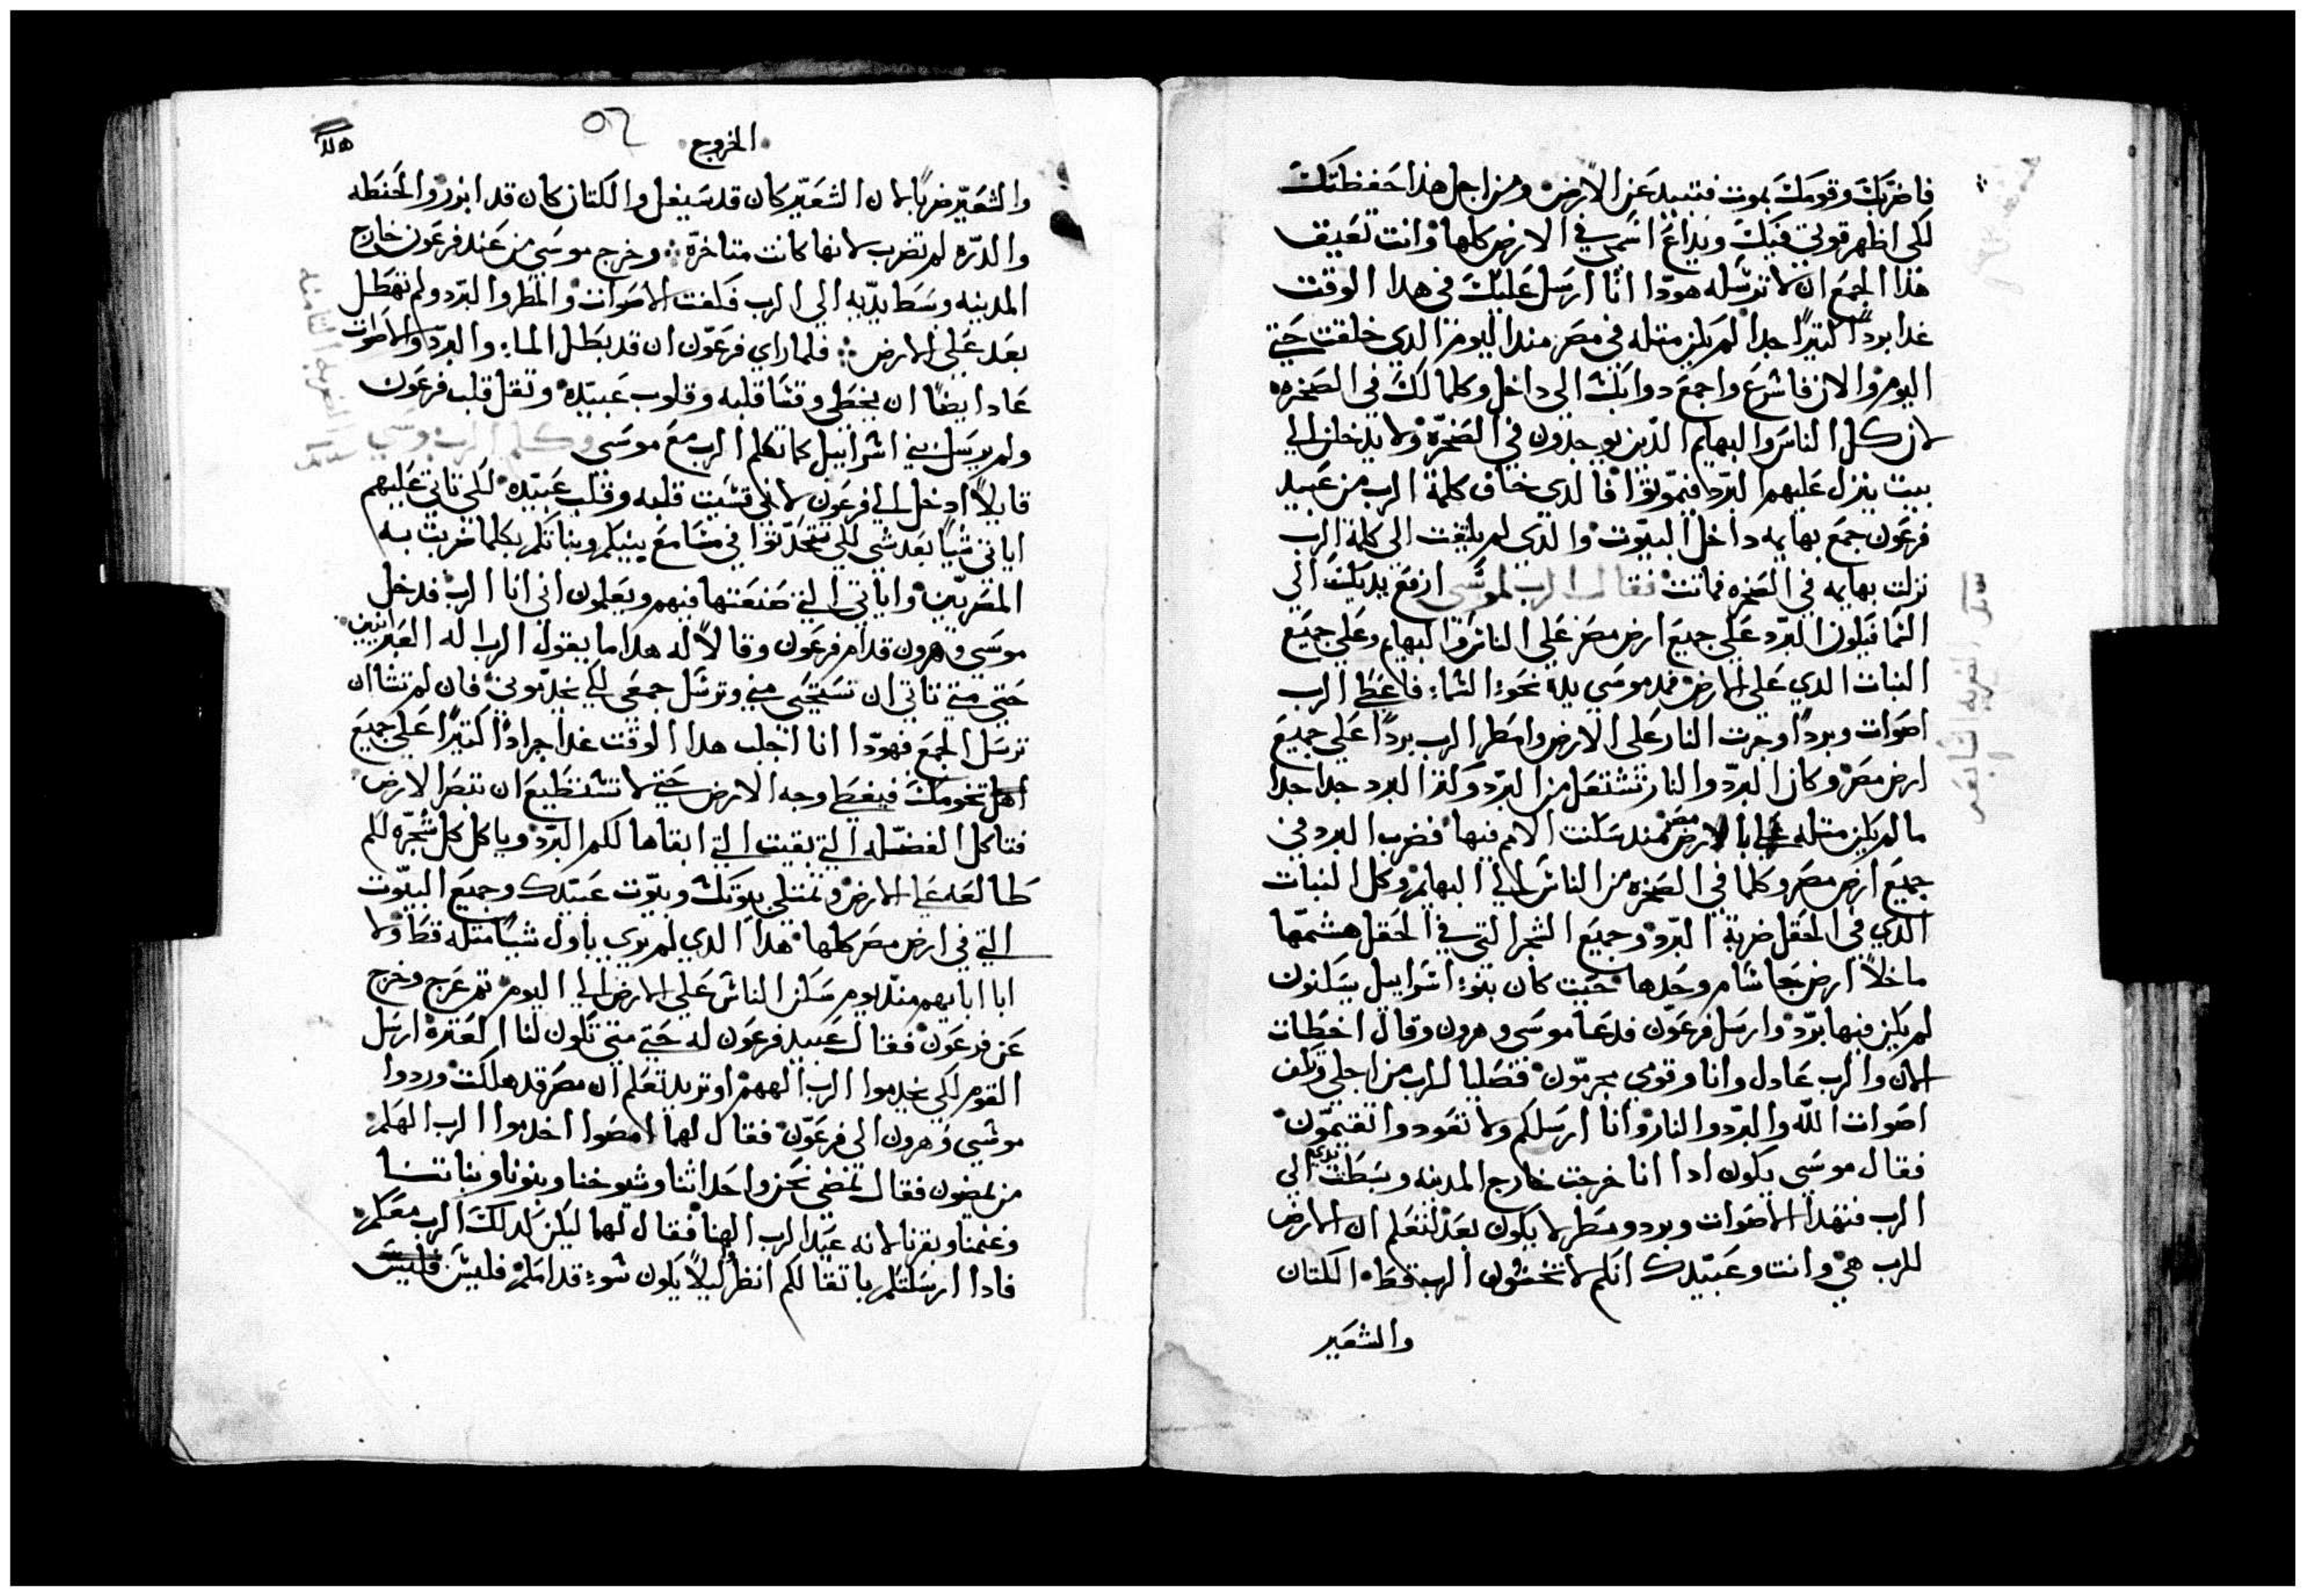 فاضربك وقومك بموت فتبيد عن الارض ومن اجل هذا حفظتك
لكى اظهر قوتي فيك ويذاع اسمي في الارض كلها وانت تعيق
هذا الجمع ان لا ترسله هودا انا ارسل عليك في هدا الوقت
غدا بردًا كتيرًا جدا لم يكن متله في مصر مند اليوم الدي خلقت حتي
اليوم والان فاسرع واجمع دوابك الى داخل وكلما لك في الصخره
لان كل الناس والبهايم الدين يوجدون في الصخره ولا يدخلن الي
بيت ينزل عليهم البرد فيموتوا فالدي خاف كلمة الرب من عبيد
فرعون جمع بهايمه داخل البيوت والدي لم يلتفت الى كلمة الرب
نزلت بهايمه في الصخره فماتت فقال الرب لموسى ارفع يديك الي
السما فيلون البرد على جميع ارض مصر على الناس والبهايم وعلى جميع
النبات الدي على الارض فمد موسي يده نحو السماء فاعطى الرب
اصوات وبردًا وجرت النار على الارض وامطر الرب بردًا على جميع
ارض مصر وكان البرد والنار تشتعل من البرد وكتر البرد جدا جدا
ما لم يكن متله بالارض مصر مند سكنت الامم فيها فضرب البرد في
جميع ارض مصر وكلما في الصخره من الناس الي البهايم وكل النبات
الدي في الحقل ضربة البرد وجميع الشجر التي في الحقل هشمها
ما خلا ارض جاشام وحدها حيت كان بنو اسراييل يسكنون
لم يكن فيها برد وارسل فرعون فدعا موسى وهرون وقال اخطات
الان والرب عادل وانا وقومي مجرمون فتصليا للرب من اجلي وتكف
اصوات الله والبرد والنار وانا ارسلكم ولا تعودوا تقيمون
فقال موسى يكون ادا انا خرجت خارج المدينه وبسطت يدي الي
الرب فتهدا الاصوات وبرد ومطر لا يكون بعد لتعلم ان الارض
للرب هي وانت وعبيدك انكم لا تخشون الرب قط الكتان
والشعير
الخروج
٥٢
والشعير ضربا لان الشعير كان قد سيفل والكتان كان قد ابزر والحنطه
والدره لم تضرب لانها كانت متاخره وخرج موسى من عند فرعون خارج
المدينه وبسط يديه الي الرب فكفت الاصوات والمطر والبرد ولم تهطل
بعد على الارض فلما راي فرعون ان قد بطل الماء والبرد والاصوات
عاد ايضًا ان يخطي وقسا قلبه وقلوب عبيده وتقل قلب فرعون
ولم يرسل بني اسراييل كما تكلم الرب مع موسى وكلم الرب موسي
قايلاً ادخل الي فرعون لاني قسيت قلبه وقلب عبيده لكي تاتي عليهم
اياتي شيًا بعد شي لكي تتحدثوا في مسامع بنيكم وبناتكم بكلما ضربت به
المصريين واياتي التي صنعتها فيهم ويعلمون اني انا الرب فدخل
موسى وهرون قدام فرعون وقالا له هدا ما يقول الرب اله العبرانيين
حتي متي تاتي ان تستحي مني وترسل جمعي لكي يخدموني فان لم تشا ان
ترسل الجمع فهودا انا اجلب هدا الوقت غدا جرادًا كتيرًا على جميع
تخومك فيغطي وجه الارض حتي لا تستطيع ان تبصر الارض
فتاكل الفضله التي بقيت التي ابقاها لكم البرد وياكل كل شجره لكم
طالعه على الارض وتمتلي بيوتك وبيوت عبيدك وجميع البيوت
التي في ارض مصر كلها هدا الدي لم يري باول شيًا متله قط ولا
ابا ابايهم مند يوم سكن الناس على الارض الي اليوم تم عرج وخرج
عن فرعون فقال عبيد فرعون له حتي متي تكون لنا العتره ارسل
القوم لكي يخدموا الرب الههم او تريد تعلم ان مصر قد هلكت وردوا
موسي وهرون الى فرعون فقال لهما امضوا اخدموا الرب الهكم
من يمضون فقال نمضي نحن واحداثنا وشيوخنا وبنونا وبناتنا
وغنمنا وبقرنا لانه عيد الرب الهنا فقال لهما ليكن كدلك الرب معكم
فادا ارسلتكم باتقالكم انظر ليلاً يكون سوء قدامكم فليس